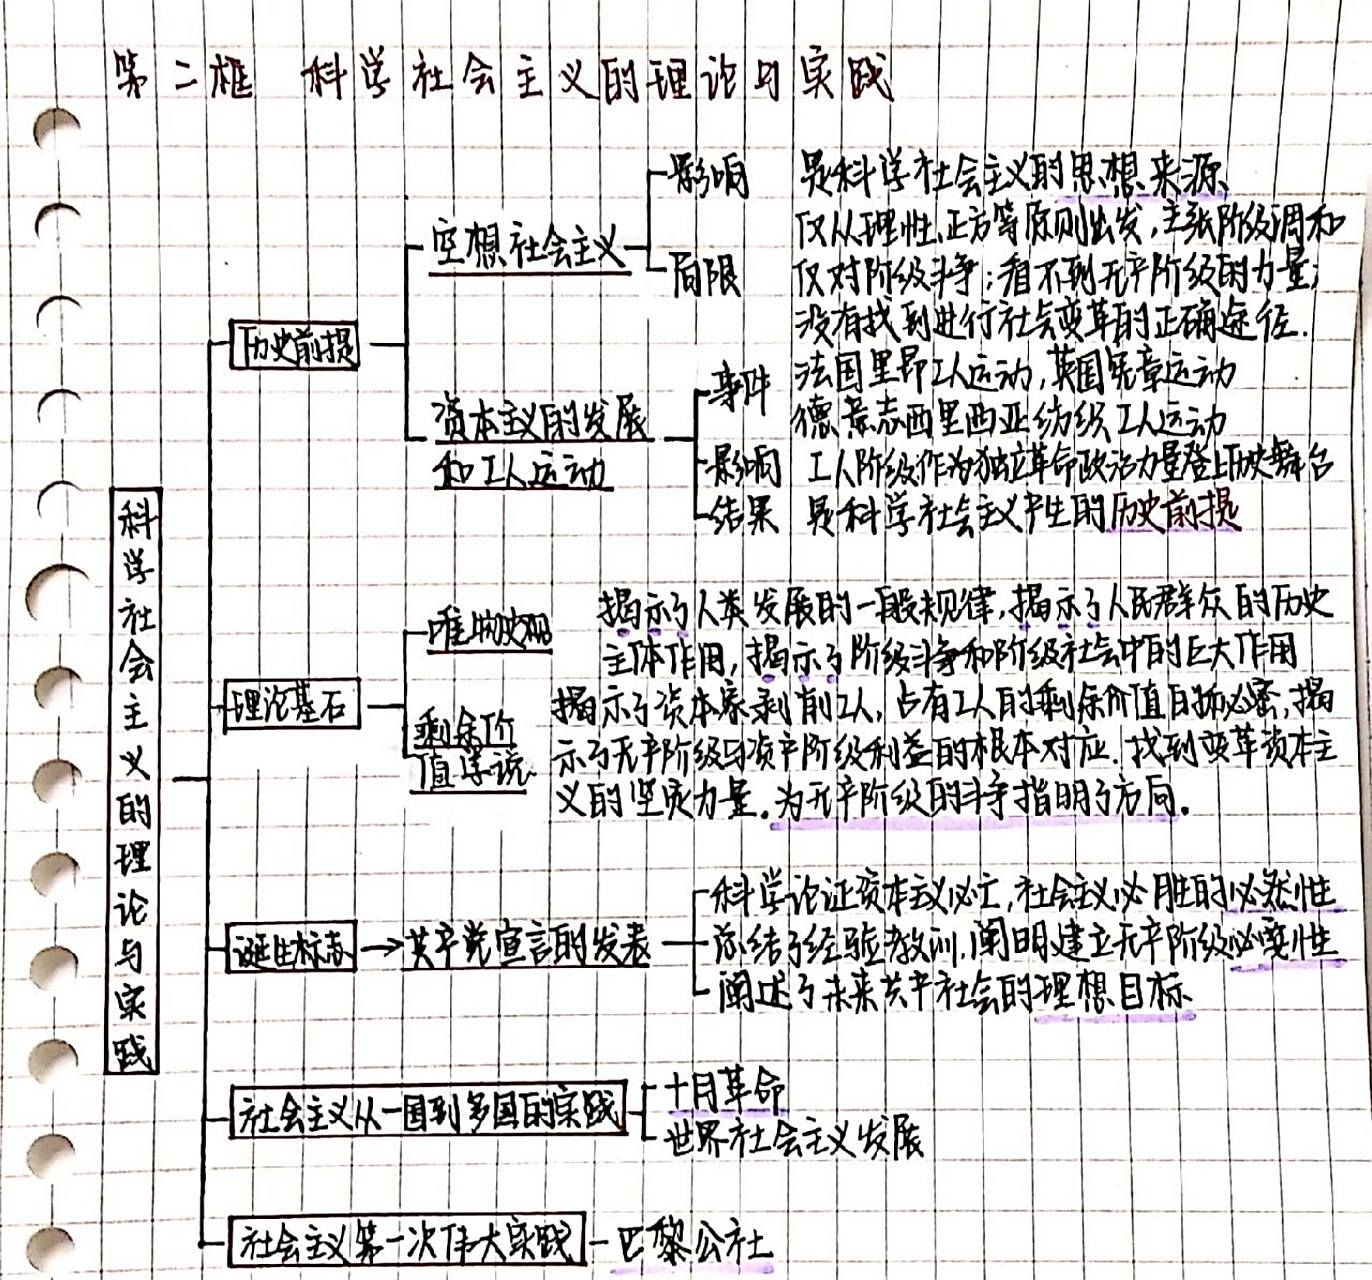 第二框 科学社会主义的理论与实践
科学社会主义的理论与实践
历史前提
空想社会主义
影响 是科学社会主义的思想来源
局限
仅从理性、正方等原则出发,主张阶级调和
仅对阶级斗争;看不到无产阶级的力量;
没有找到进行社会变革的正确途径.
资本主义的发展
和工人运动
事件
法国里昂工人运动,英国宪章运动
德意志西里西亚纺织工人运动
影响 工人阶级作为独立革命政治力量登上历史舞台
结果 是科学社会主义产生的历史前提
理论基石
唯物史观
揭示了人类发展的一般规律,揭示了人民群众的历史
主体作用,揭示了阶级斗争和阶级社会中的巨大作用
剩余价
值学说
揭示了资本家剥削工人,占有工人的剩余价值的秘密,揭
示了无产阶级与资产阶级利益的根本对应.找到变革资本主
义的坚实力量.为无产阶级的斗争指明了方向.
诞生标志→共产党宣言的发表
科学论证资本主义必亡,社会主义必胜的必然性
总结了经验教训.阐明建立无产阶级必要性
阐述了未来共产社会的理想目标
社会主义从一国到多国的实践
十月革命
世界社会主义发展
社会主义第一次伟大实践 巴黎公社